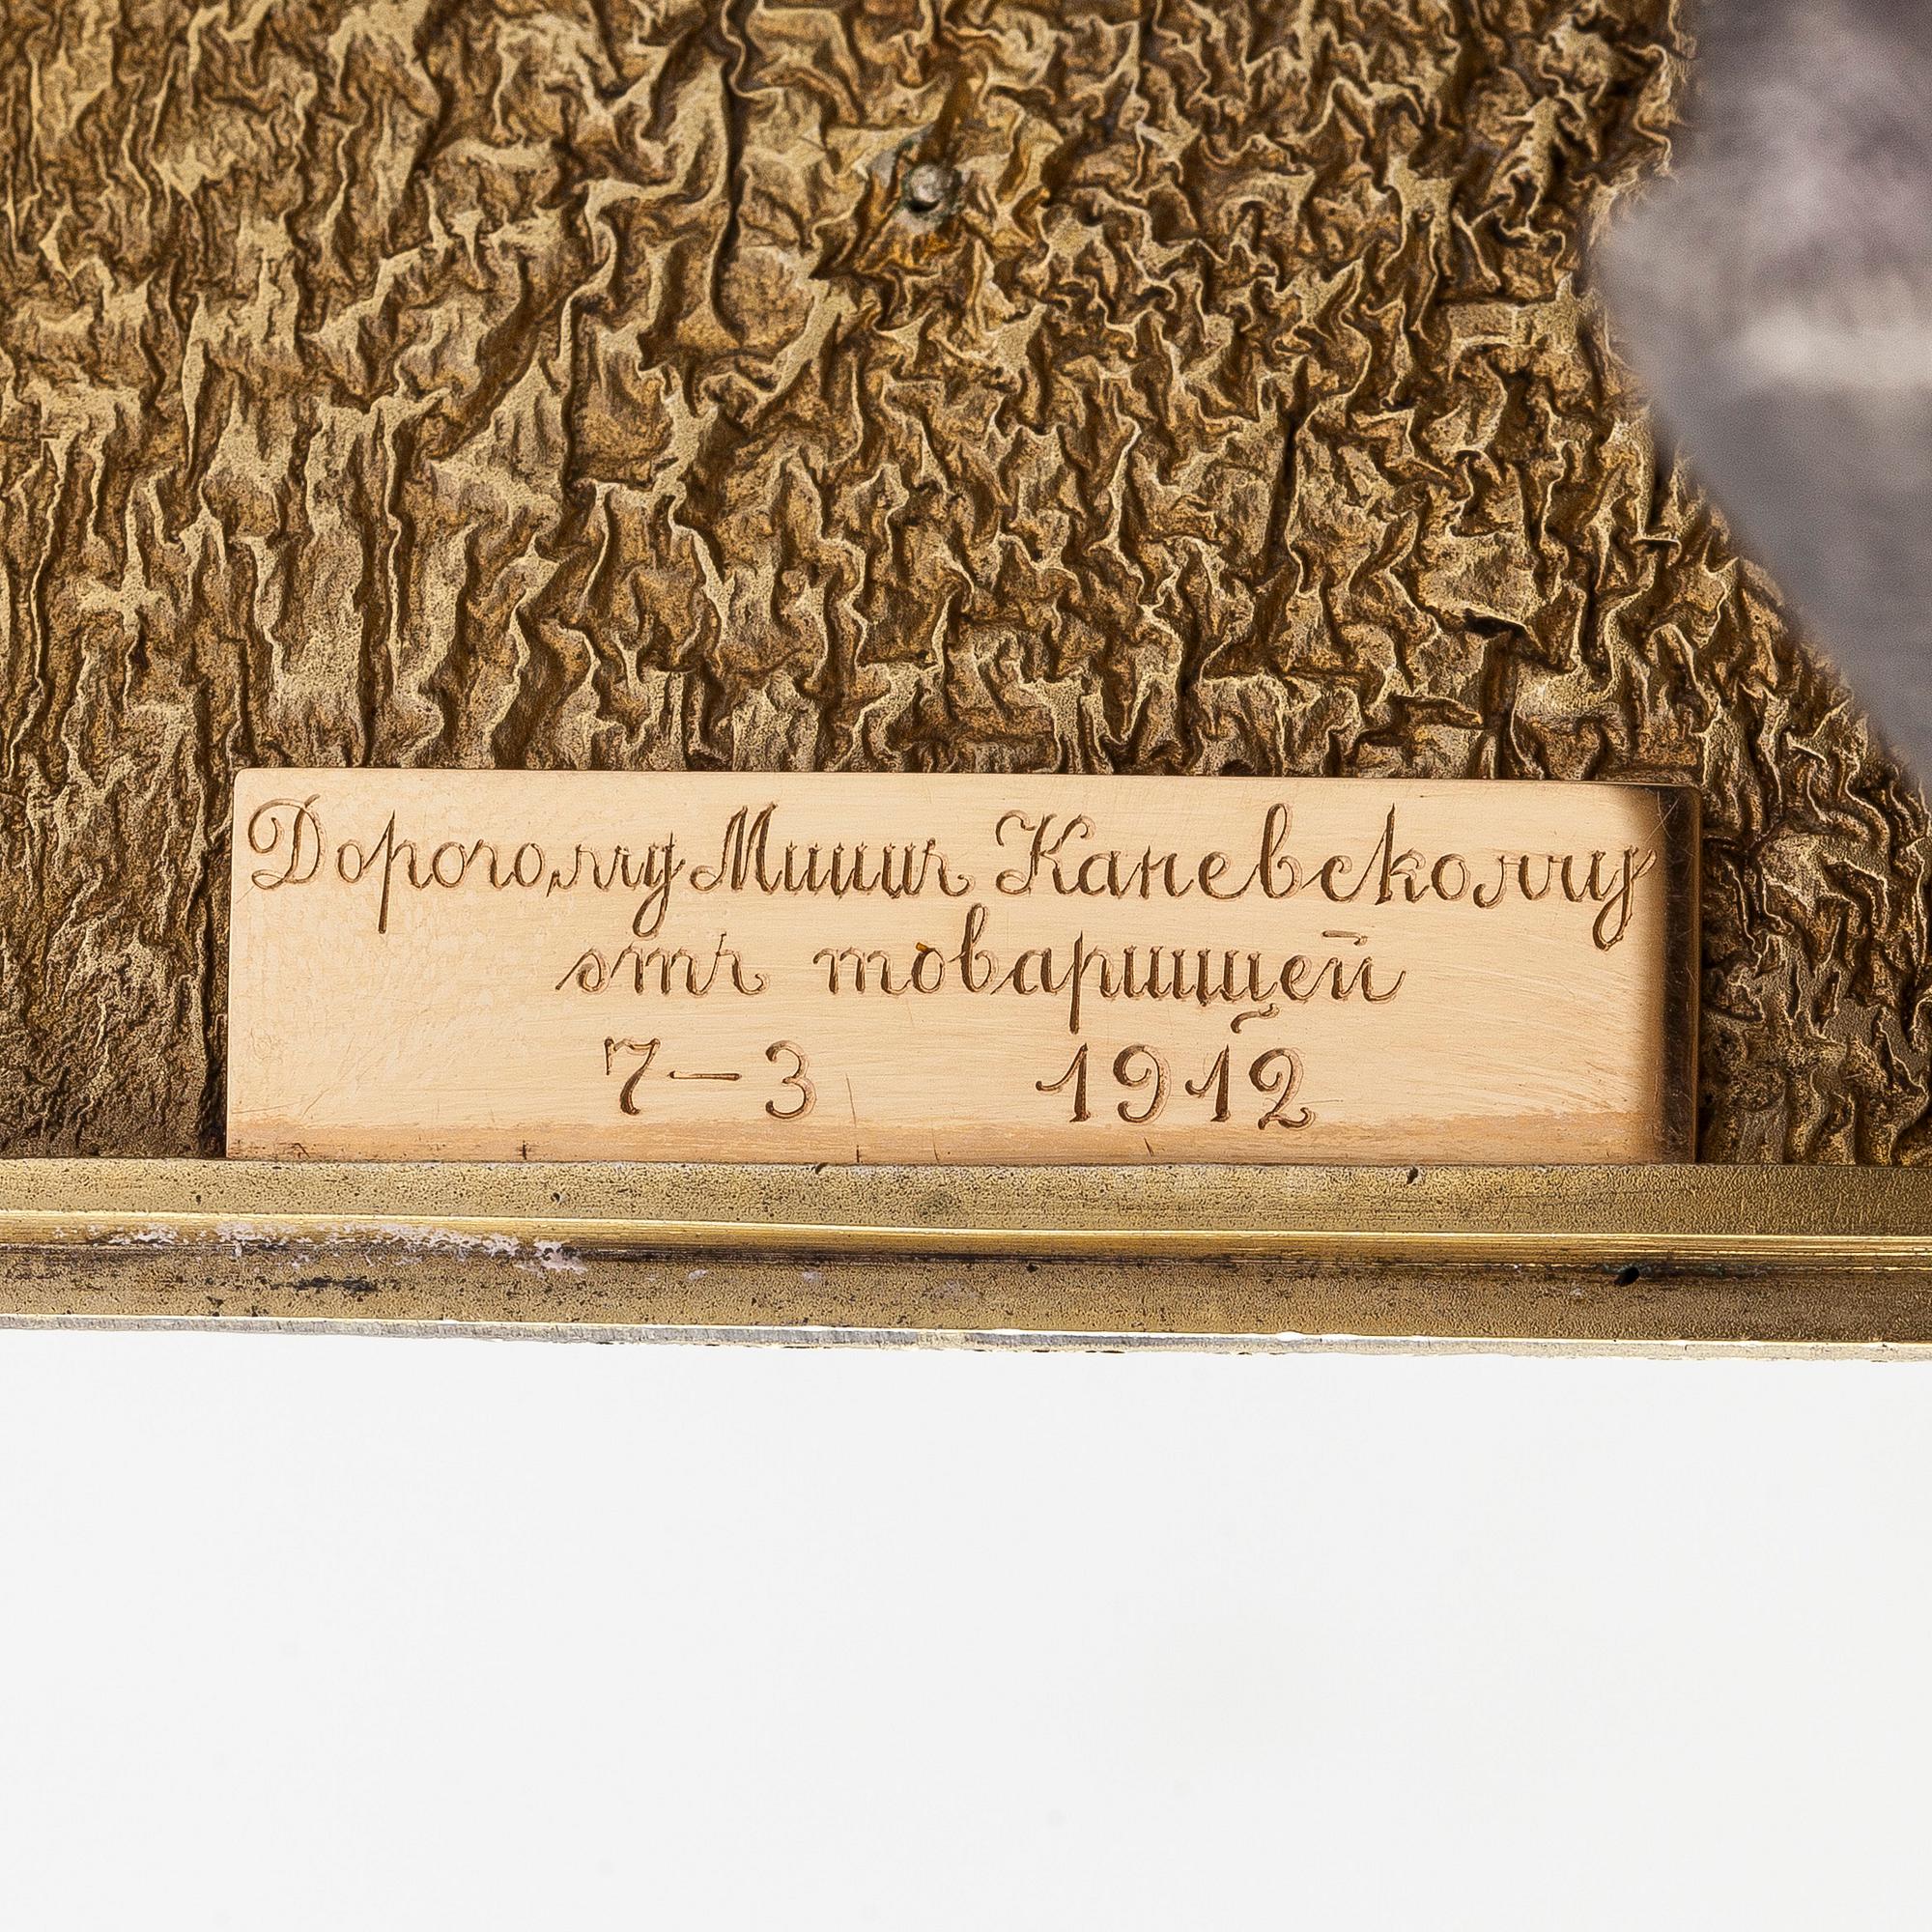 Дорогому Мишѣ Каневскому
отъ товарищей
7-3 1912